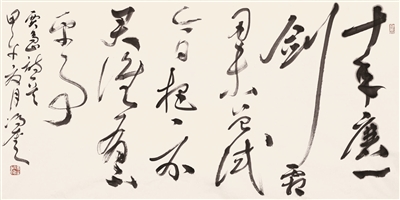 十年磨一
剑霜
刃未曾试
今日把示
君谁有不
平事
贾岛诗
甲午 月